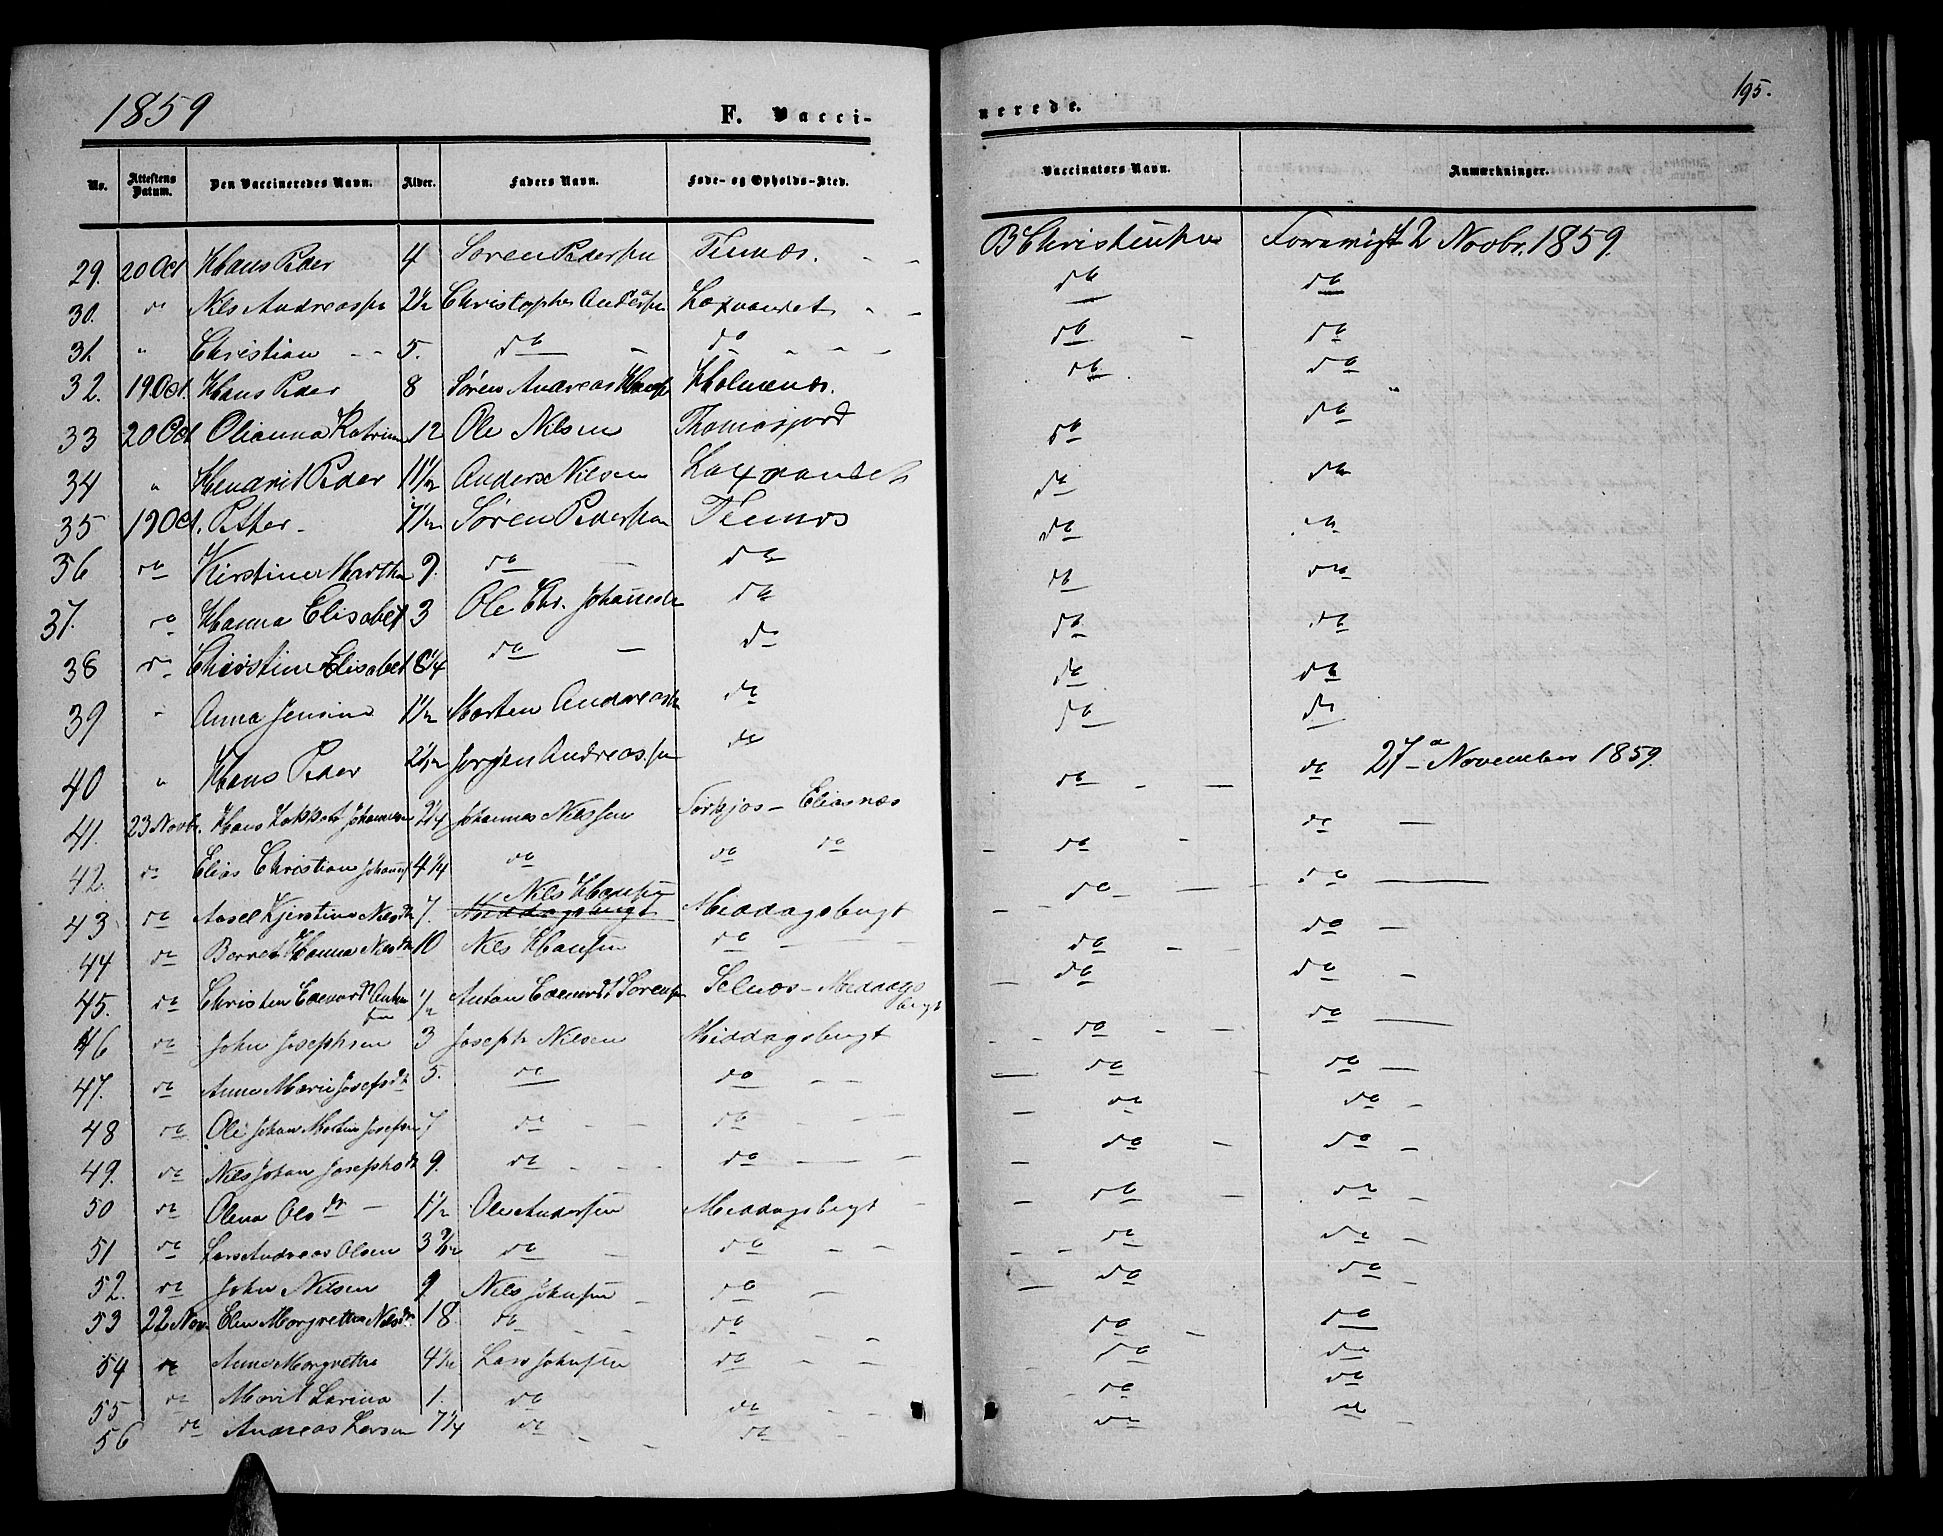 1859 F. Vacci- nerede. 195.
No. Attestens Datum. Den Vaccineredes Navn. Alder. Faders Navn. Føde- og Opholds-Sted. Vaccinators Navn. Anmærkninger.
29. 20 Oct Hans Peder 4 Sören Pedersen Foreviist 2 Novbr. 1859.
30. do Nils Andreassen 2 1/2 Christopher Laxvandet do do
31. " Christian 5. do do do do
32. 19 Oct. Hans Peder 8 Sören Andreas Holmenæs. do do
33 20 Oct Olianna 12 Ole Nilsen Thomasjord do do
34 " Hendrik Peder 11 1/2 Anders Nilsen Laxvandet do do
35 19 Oct. Petter 7 1/2 Sören Pedersen do do
36 do Kirstine Martha 9. do do do do
37. do Hanna Elisabet 3 Ole Chr. Johannesen do do do
38 do Christine Elisabet 8 1/4 do do do do
39 " Anna Jensine 1 1/2 Morten Andreassen do do do
40 " Hans Peder Jørgen Andreassen do do do 27de November 1859.
41. 23 Novbr. Hans Johannesen 2 1/4 Johannes Nilssen Eliasnæs do do
42. do Elias Christian 4 1/4 do do do do do
43 do Kjerstine Nilsdtr 7. Middagsbugt Nils Hansen Middagsbugt do do
44 do Hanna Nilsdtr 10 Nils Hansen do do do
45. do Christen Edevardt 1/2 Anton Edevardt Sörensen Selnæs - Middagsbugt do do
46 do John Josephsen 3 Joseph Nilsen Middagsbugt do do
47. do Anne Marie Josefsdtr 5. do do do do
48 do Ole Johan Martin Josefsen 7 do do do do
49. do Nils Johan 9. do do do do
50 do Olena Olsdtr 1 1/2 Ole Andersen Middagsbugt do do
51 do Lars Andreas Olsen do do do do
52. do John Nilsen 9 Nils Johnsen do do do
53 22 Nov. Elen Margrethe Nilsdtr 18. do do do do
54 do Anne Margrethe 4 1/2 Lars Johnsen do do do
55 do Marit Larina 1. do do do do
56 do Andreas Larsen 7 1/4 do do do do